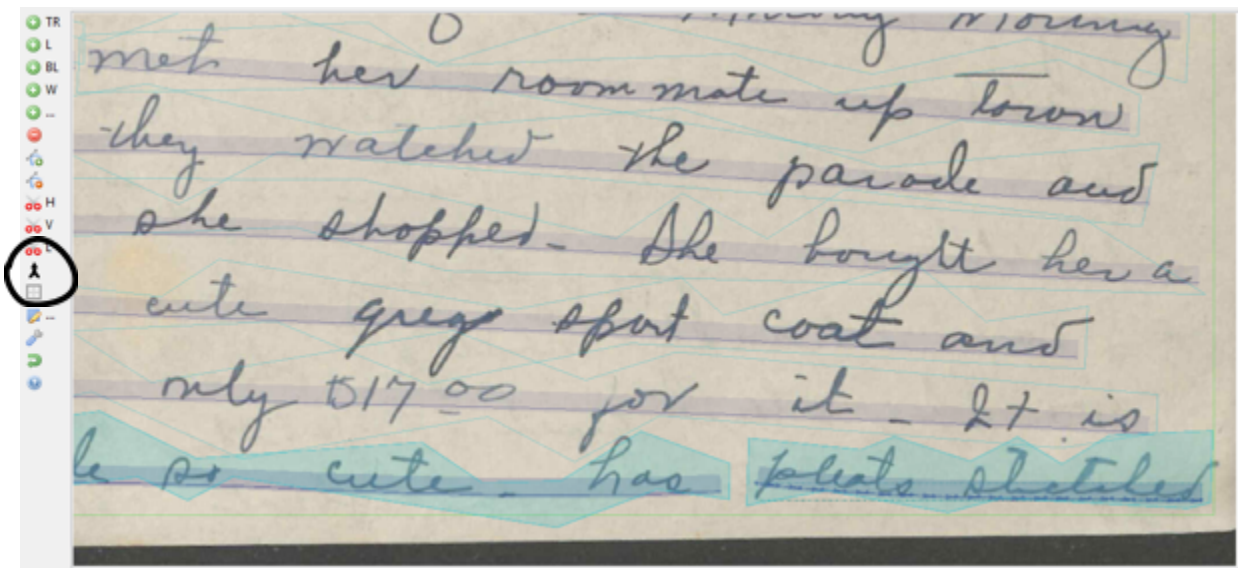 TR
L
BL
W
...
H
V
L
...
Morning
met her roommate up town
they watched the parade and
she shopped - She bought her a
cute grey sport coat and
only $17 00 for it - It is
so cute - has pleats stitched